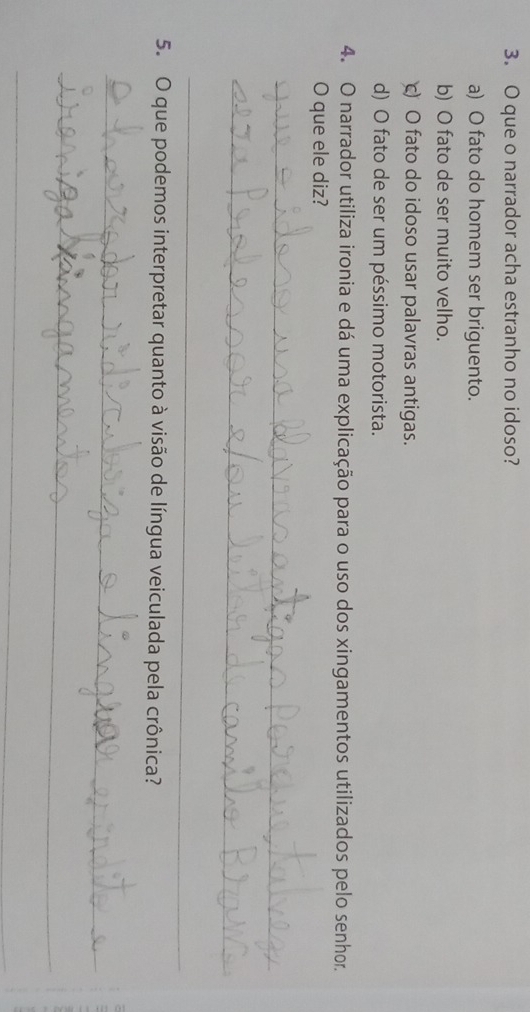 3. O que o narrador acha estranho no idoso?
a) O fato do homem ser briguento.
b) O fato de ser muito velho.
c) O fato do idoso usar palavras antigas.
d) O fato de ser um péssimo motorista.
4. O narrador utiliza ironia e dá uma explicação para o uso dos xingamentos utilizados pelo senhor.
O que ele diz?
que o idoso usa palavras antigas porque talvez
seja professor e/ou leitor de camilo Branco
5. O que podemos interpretar quanto à visão de língua veiculada pela crônica?
o narrador ridiculariza a lingua erudito e
ironiza xinngamentos